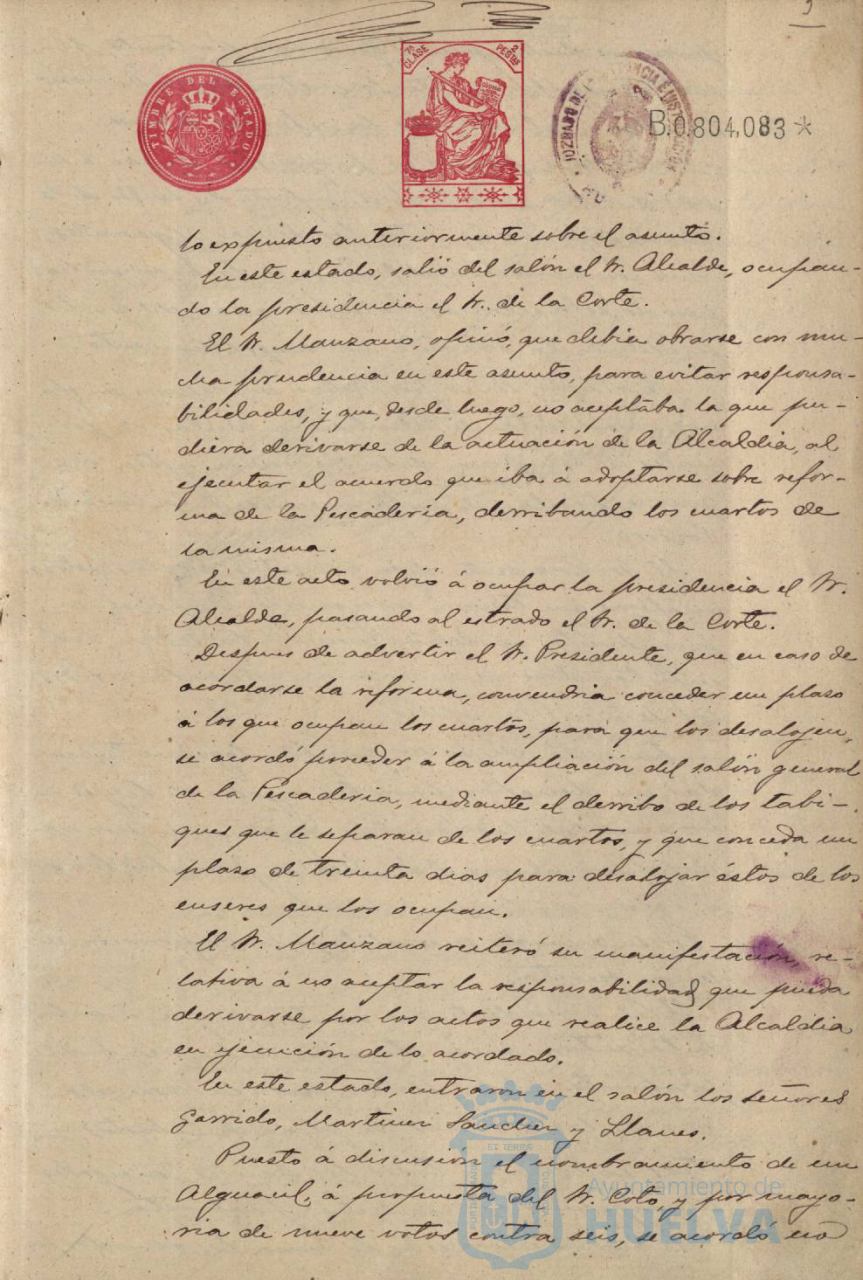 TIMBRE DEL ESTADO
7ª CLASE 2 PESTAS
B.0.804,083 *
lo expuesto anteriormente sobre el asunto.
En este estado, salió del salón el Sr. Alcalde, ocupan-
do la presidencia el Sr. de la Corte.
El Sr. Manzano, opinó, que debia obrarse con mu-
cha prudencia en este asunto, para evitar responsa-
bilidades, y que, desde luego, no aceptaba la que pu-
diera derivarse de la actuación de la Alcaldia, al
ejecutar el acuerdo que iba á adoptarse sobre refor-
ma de la Pescadería, derribando los cuartos de
la misma.
En este acto volvió á ocupar la presidencia el Sr.
Alcalde, pasando al estrado el Sr. de la Corte.
Despues de advertir el Sr. Presidente, que en caso de
acordarse la reforma, convendria conceder un plazo
á los que ocupan los cuartos, para que los desalojen,
se acordó proceder á la ampliación del salón general
de la Pescaderia, mediante el derribo de los tabi-
ques que le separan de los cuartos, y que conceda un
plazo de treinta dias para desalojar éstos de los
enseres que los ocupan.
El Sr. Manzano reiteró su manifestación, re-
lativa á no aceptar la responsabilidad que pueda
derivarse por los actos que realice la Alcaldia
en ejecución de lo acordado.
En este estado, entraron en el salón los señores
Garrido, Martinez Sanchez y Llanes.
Puesto á discusión el nombramiento de un
Alguacil, á propuesta del Sr. Coto y por mayo-
ria de nueve votos contra seis, se acordó no
Ayuntamiento de
HUELVA